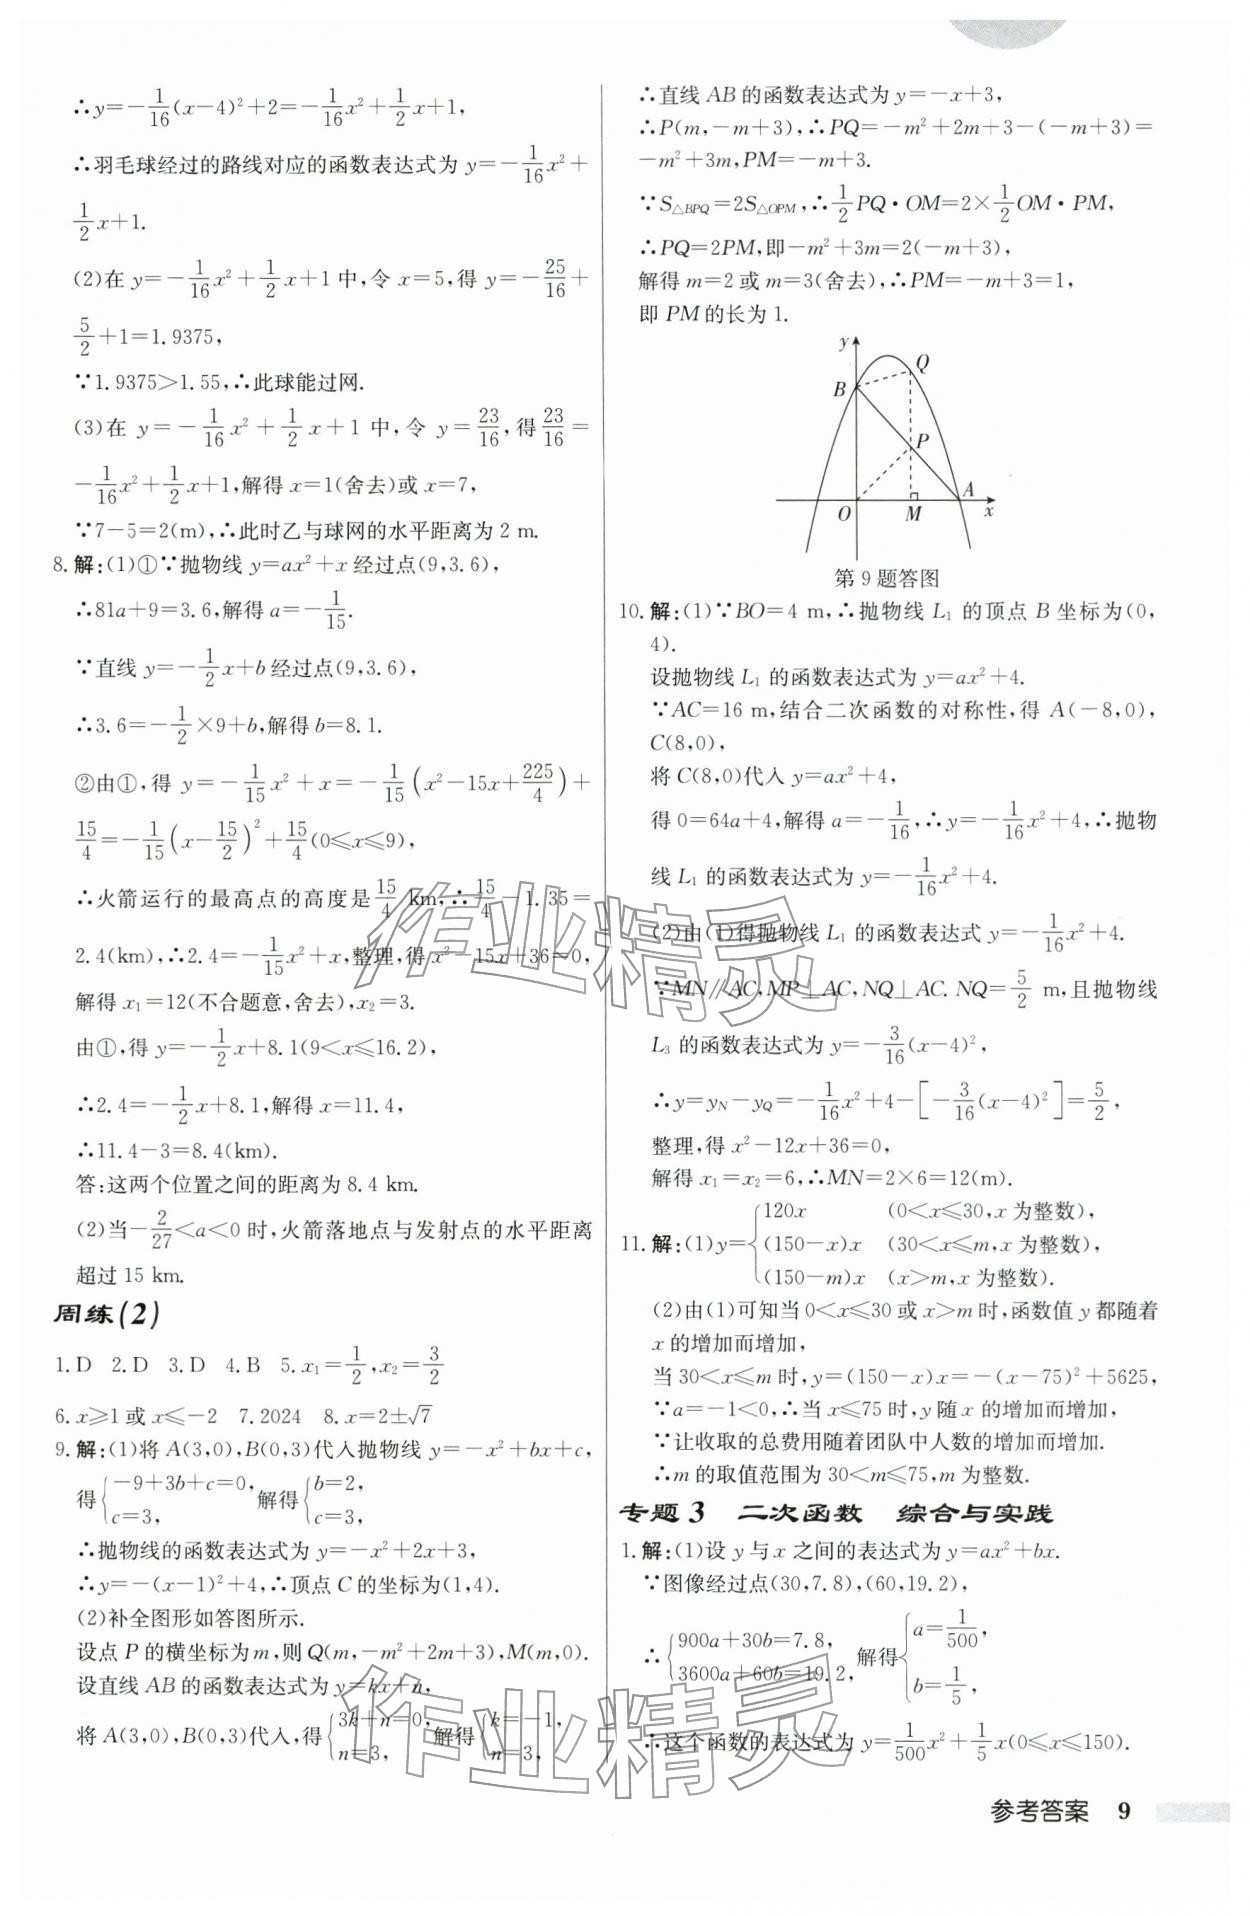 ∴y=-1/16(x-4)²+2=-1/16x²+1/2x+1,
∴羽毛球经过的路线对应的函数表达式为 y=-1/16x²+
1/2x+1.
(2)在 y=-1/16x²+1/2x+1 中,令 x=5,得 y=-25/16+
5/2+1=1.9375,
∵1.9375>1.55,∴此球能过网.
(3)在 y=-1/16x²+1/2x+1 中,令 y=23/16,得23/16=
-1/16x²+1/2x+1,解得 x=1(舍去)或 x=7,
∵7-5=2(m),∴此时乙与球网的水平距离为 2 m.
8.解:(1)①∵抛物线 y=ax²+x 经过点(9,3.6),
∴81a+9=3.6,解得 a=-1/15.
∵直线 y=-1/2x+b 经过点(9,3.6),
∴3.6=-1/2×9+b,解得 b=8.1.
②由①,得 y=-1/15x²+x=-1/15(x²-15x+225/4)+
15/4=-1/15(x-15/2)²+15/4(0≤x≤9),
∴火箭运行的最高点的高度是15/4 km,∴15/4-1.35=
2.4(km),∴2.4=-1/15x²+x,整理,得 x²-15x+36=0,
解得 x₁=12(不合题意,舍去),x₂=3.
由①,得 y=-1/2x+8.1(9<x≤16.2),
∴2.4=-1/2x+8.1,解得 x=11.4,
∴11.4-3=8.4(km).
答:这两个位置之间的距离为 8.4 km.
(2)当-2/27<a<0 时,火箭落地点与发射点的水平距离
超过 15 km.
周练(2)
1.D 2.D 3.D 4.B 5.x₁=1/2,x₂=3/2
6.x≥1 或 x≤-2 7.2024 8.x=2±√7
9.解:(1)将 A(3,0),B(0,3)代入抛物线 y=-x²+bx+c,
得{-9+3b+c=0, c=3, 解得{b=2, c=3,
∴抛物线的函数表达式为 y=-x²+2x+3,
∴y=-(x-1)²+4,∴顶点 C 的坐标为(1,4).
(2)补全图形如答图所示.
设点 P 的横坐标为 m,则 Q(m,-m²+2m+3),M(m,0).
设直线 AB 的函数表达式为 y=kx+n,
将 A(3,0),B(0,3)代入,得{3k+n=0, n=3, 解得{k=-1, n=3,
∴直线 AB 的函数表达式为 y=-x+3,
∴P(m,-m+3),∴PQ=-m²+2m+3-(-m+3)=
-m²+3m,PM=-m+3.
∵S△BPQ=2S△OPM,∴1/2PQ·OM=2×1/2OM·PM,
∴PQ=2PM,即-m²+3m=2(-m+3),
解得 m=2 或 m=3(舍去),∴PM=-m+3=1,
即 PM 的长为 1.
y
B
Q
P
A
O
M
x
第 9 题答图
10.解:(1)∵BO=4 m,∴抛物线 L₁ 的顶点 B 坐标为(0,
4).
设抛物线 L₁ 的函数表达式为 y=ax²+4.
∵AC=16 m,结合二次函数的对称性,得 A(-8,0),
C(8,0),
将 C(8,0)代入 y=ax²+4,
得 0=64a+4,解得 a=-1/16,∴y=-1/16x²+4,∴抛物
线 L₁ 的函数表达式为 y=-1/16x²+4.
(2)由(1)得抛物线 L₁ 的函数表达式 y=-1/16x²+4.
∵MN∥AC,MP⊥AC,NQ⊥AC.NQ=5/2 m,且抛物线
L₃ 的函数表达式为 y=-3/16(x-4)²,
∴y=yN-yQ=-1/16x²+4-[-3/16(x-4)²]=5/2,
整理,得 x²-12x+36=0,
解得 x₁=x₂=6,∴MN=2×6=12(m).
11.解:(1)y={120x (0<x≤30,x 为整数),
(150-x)x (30<x≤m,x 为整数),
(150-m)x (x>m,x 为整数).
(2)由(1)可知当 0<x≤30 或 x>m 时,函数值 y 都随着
x 的增加而增加,
当 30<x≤m 时,y=(150-x)x=-(x-75)²+5625,
∵a=-1<0,∴当 x≤75 时,y 随 x 的增加而增加,
∵让收取的总费用随着团队中人数的增加而增加.
∴m 的取值范围为 30<m≤75,m 为整数.
专题 3 二次函数 综合与实践
1.解:(1)设 y 与 x 之间的表达式为 y=ax²+bx.
∵图像经过点(30,7.8),(60,19.2),
∴{900a+30b=7.8, 3600a+60b=19.2, 解得{a=1/500, b=1/5,
∴这个函数的表达式为 y=1/500x²+1/5x(0≤x≤150).
参考答案 9
作业精灵
作业精灵